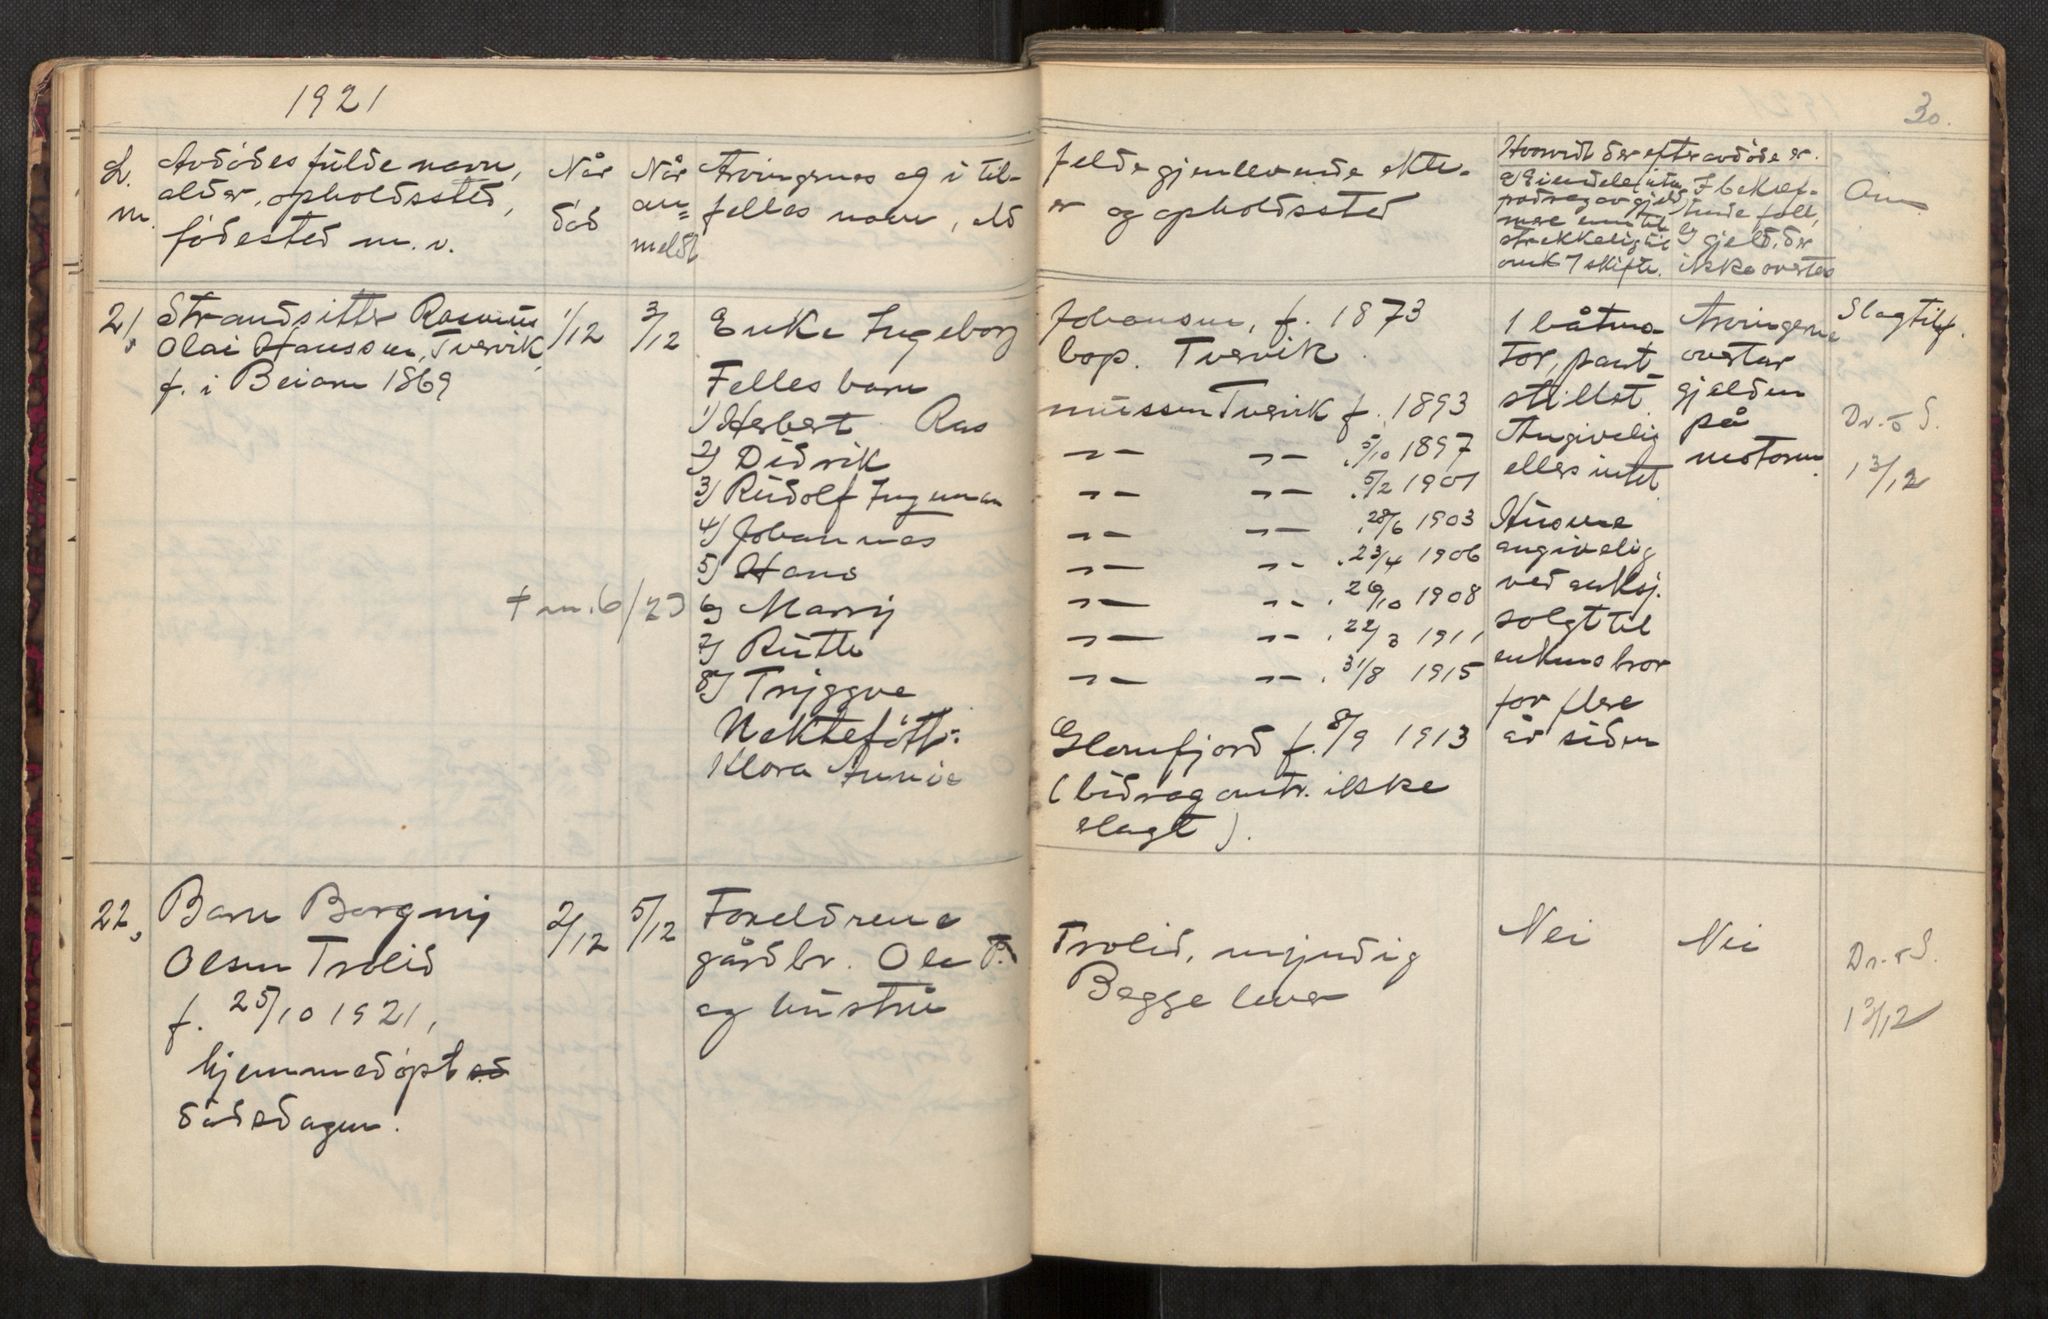 1921
30.
L.
m.
Avdødes fulde navn,
alder, opholdssted,
fødested m. v.
Når
død
Når
an=
meldt
Arvingernes og i til-
felles navn, ald
felde gjenlevende ekte-
er og opholdssted
Hvorvidt der efter avdøde er
ikke overtas
Anm
21,
Strandsitter Rasmus
Olai Hansson, Tvervik,
f. i Beiarn 1869
1/12
3/12
Enke Ingeborg
Felles barn
1) Herbert Ras
2) Didrik
3) Rudolf Ingeman
4) Johannes
5) Hans
† m. 6/23 6) Marrij
7) Rutte
8) Trijggve
Uekteføtt:
Klara Annie
Johansen, f. 1873
bop. Tvervik.
mussen Tvervik f. 1893
-"- -"- . 5/10 1897
-"- -"- . 5/2 1901
-"- -"- . 28/6 1903
-"- -"- . 23/4 1906
-"- -"- . 26/10 1908
-"- -"- . 22/3 1911
-"- -"- . 31/8 1915
Glomfjord f. 8/9 1913
(bidrag antr. ikke
slagt).
1 båtmo-
tor, pant-
stillet
Angivelig
ellers intet
Husene
angivelig
ved auksj.
solgt til
enkens bror
for flere
år siden
Arvingerne
overtar
gjelden
på
motoren.
Slagtilf.
Dr. o S.
13/12
22,
Barn Borgnij
Olsen Trolid
f. 25/10 1921,
hjemmedøpt
dødsdagen.
2/12
5/12
Foreldrene
gårdbr. Ole P.
og hustru
Trolid, mijndig
Begge lever
Nei
Nei
Dr. o S.
13/12